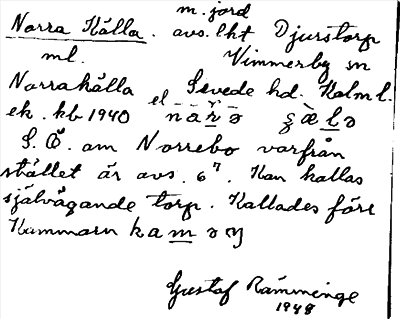 m. jord
Norra Källa. avs. lht Djurstorp
ml. Vimmerby sn
Norrakälla el Sevede hd. Kalm l.
ek. kb 1940
S. Ö. om Norrebo varfrån
stället är avs. 6⁷. Kan kallas
självägande torp. Kallades förr
Kammarn kaməɱ
Gustaf Rämminge
1948